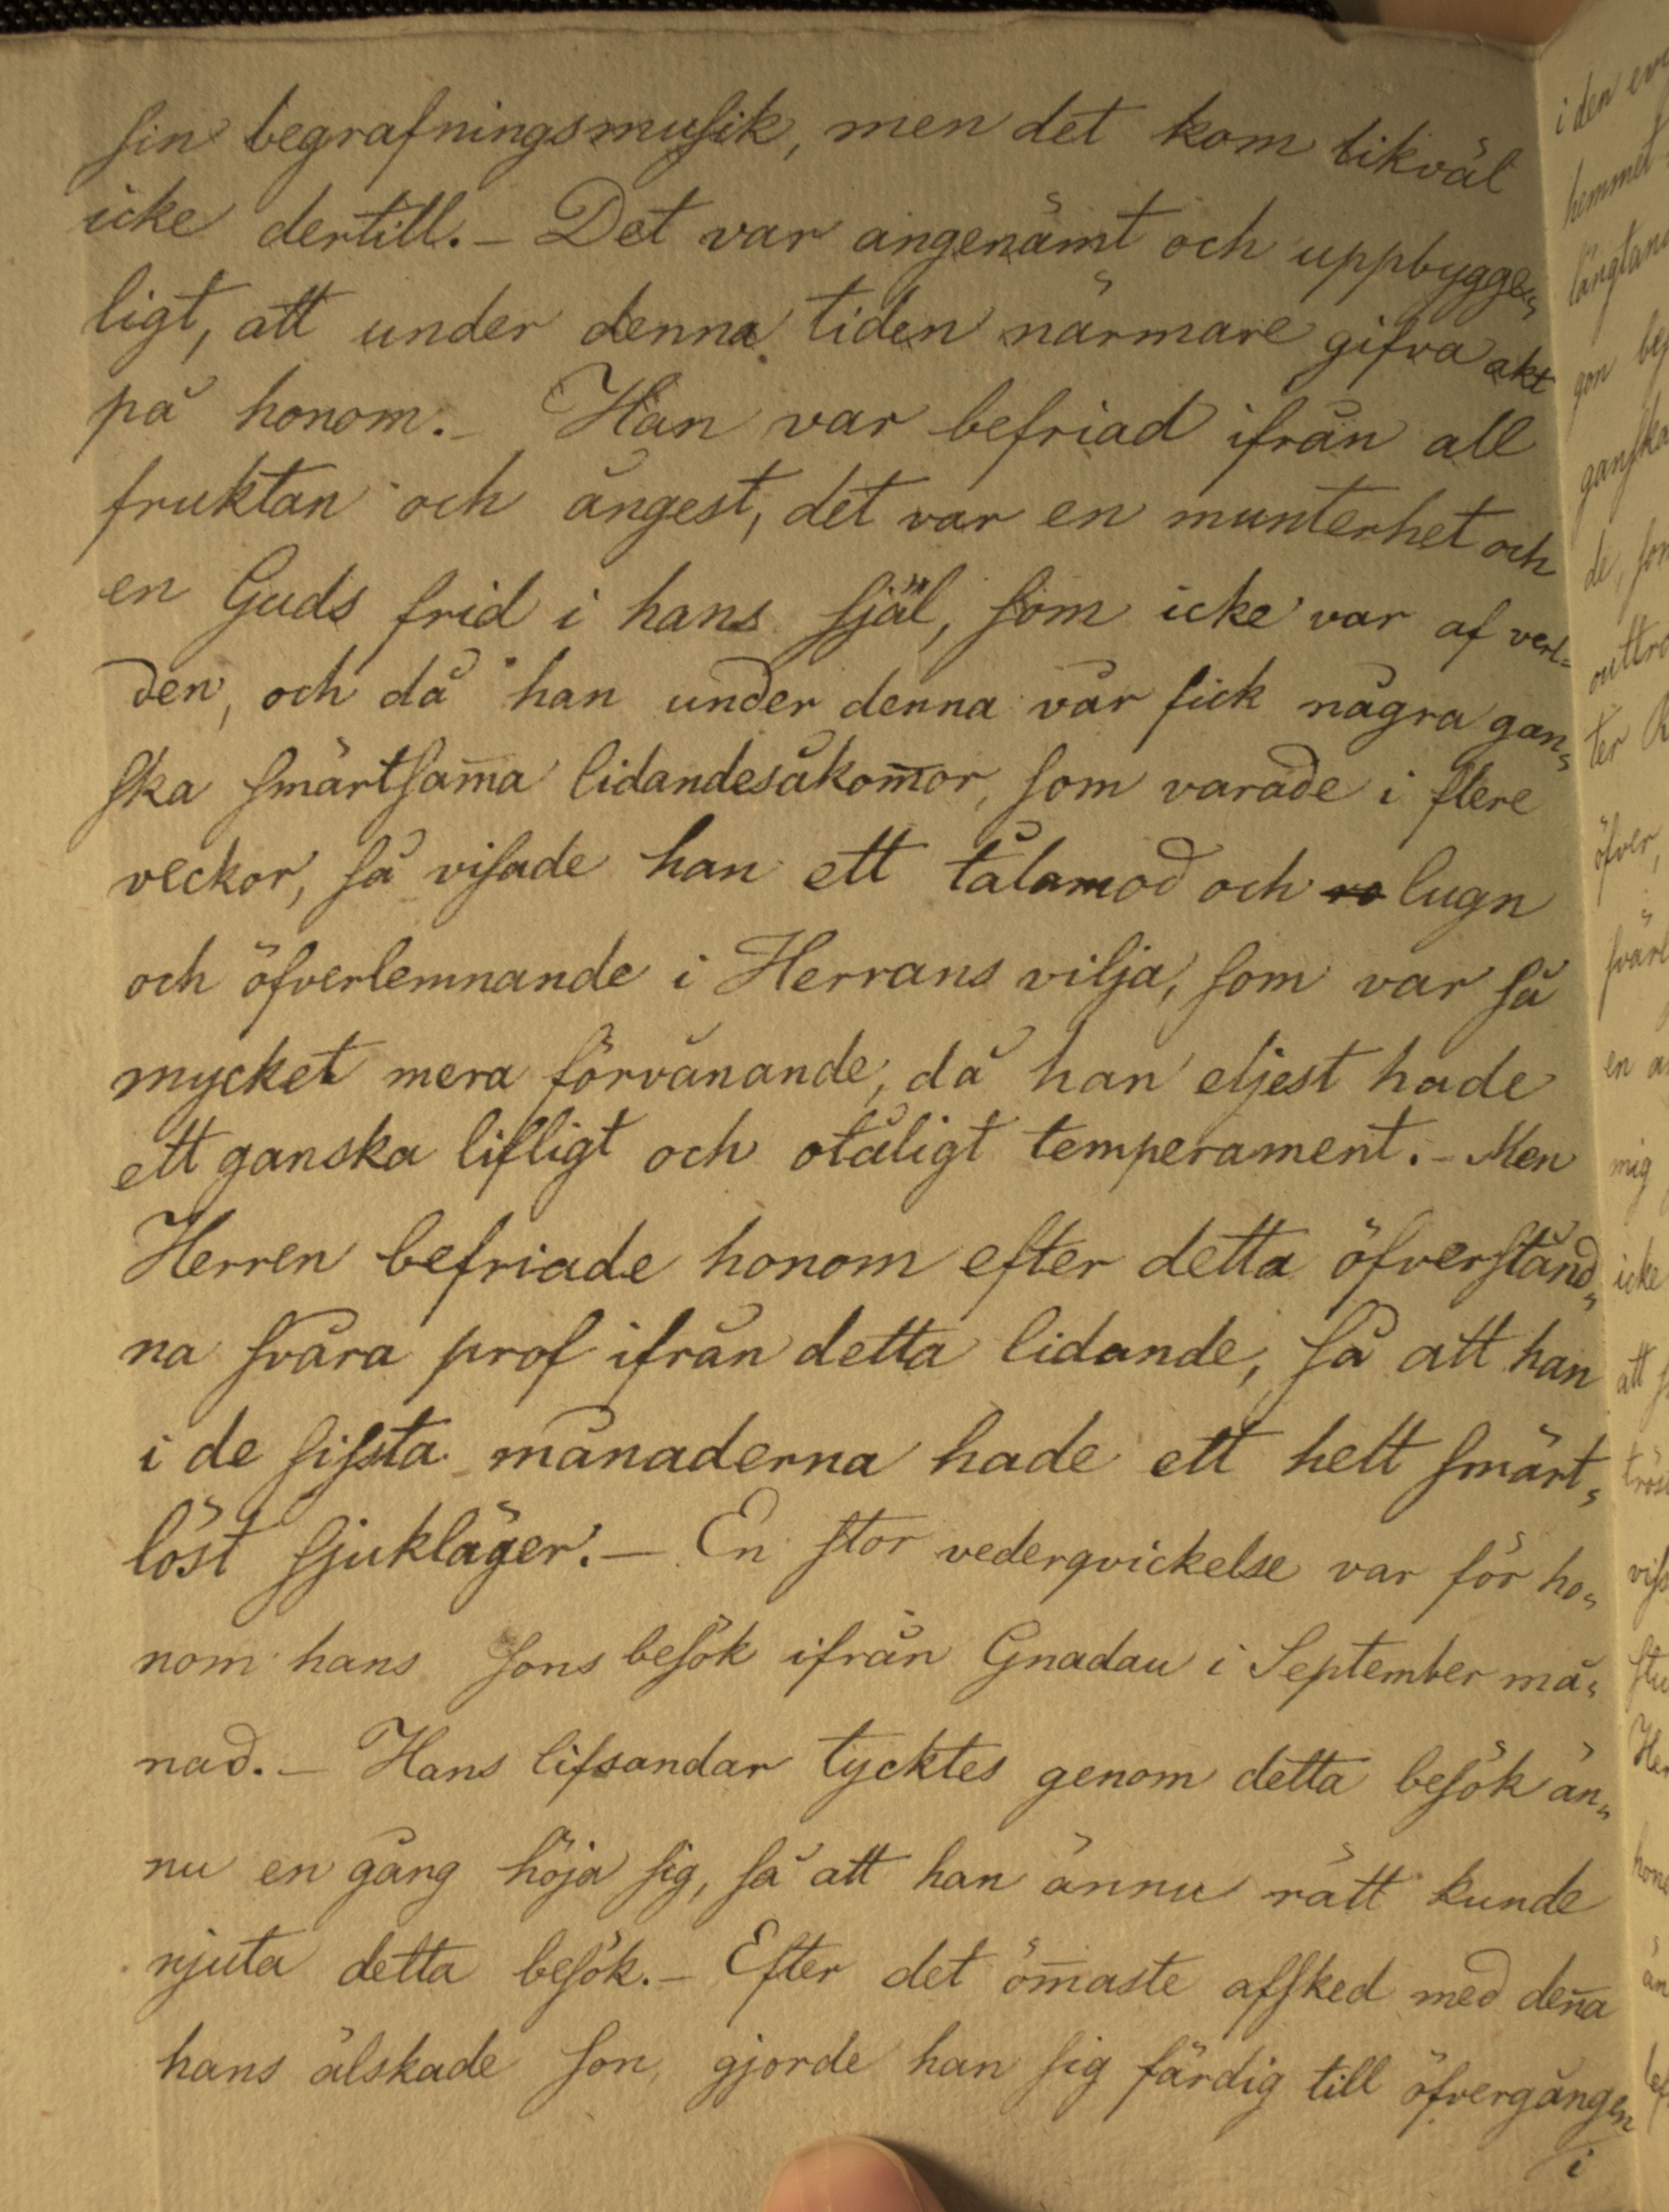 sin begrafningsmusik, men det kom likväl
icke dertill. – Det var angenämt och uppbygge„
ligt, att under denna tiden närmare gifva akt
på honom. – Han var befriad ifrån all
fruktan och ångest, det var en munterhet och
en Guds frid i hans själ, som icke var af verl-
den, och då han under denna vår fick några gan„
ska smärtsam̄a lidandesåkom̄or, som varade i flere
veckor, så visade han ett tålamod och ro lugn
och öfverlemnande i Herrans vilja, som var så
mycket mera förvånande, då han eljest hade
ett ganska lifligt och otåligt temperament. – Men
Herren befriade honom efter detta öfverstånd„
na svåra prof ifrån detta lidande, så att han
i de sissta månaderna hade ett helt smärt„
löst sjukläger. – En stor vederqvickelse var för ho„
nom hans sons besök ifrån Gnadau i September må„
nad. – Hans lifsandar tycktes genom detta besök än„
nu en gång höja sig, så att han ännu rätt kunde
njuta detta besök. – Efter det öm̄aste afsked med den̄a
hans älskade son, gjorde han sig färdig till öfvergången
i
i den
hemmet
gon
ganska
de,
ter
öfver,
en
mig
icke
att